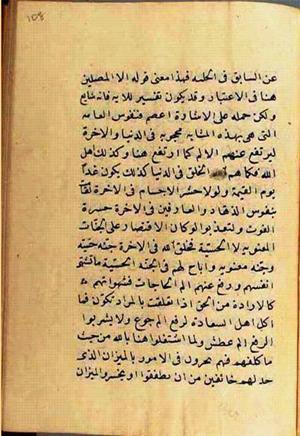 عن السابق فى الحلبه فهذا معنى قوله الا المصلين
هنا فى الاعتبار وقد يكون تفسير للآيه فانه شايع
ولكن حمله على الاشارة اعصم فنفوس العامه
التى هى بهذه المثابه محجوبه فى الدنيا والاخرة
ليرتفع عنهم الالم كما ارتفع هنا وكذلك اهل
الله فكما هم الخلق فى الدنيا كذلك يكون غدا
يوم القيمة ولولا حشر الاجسام فى الاخرة لقامت
بنفوس الزهاد والعارفين فى الاخرة حسرة
الفوت ولتعذبوا لو كان الاقتصار على الجنات
المعنويه لا الحسية فخلق الله فى الاخرة جنه حسيه
وجنه معنويه واباح لهم فى الجنه الحسية ما تشتهى
انفسهم ورفع عنهم الم الحاجات فشهواتهم
كالارادة من الحق اذا تعلقت بالمراد تكون فما
اكل اهل السعادة لرفع الم جوع ولا يشربوا
لرفع الم عطش ولما اشتغلوا هنا بالله من حيث
ما كلفهم فهم يجرون فى الامور بالميزان الذى
حد لهم خائفين من ان يطففوا او يخسروا الميزان